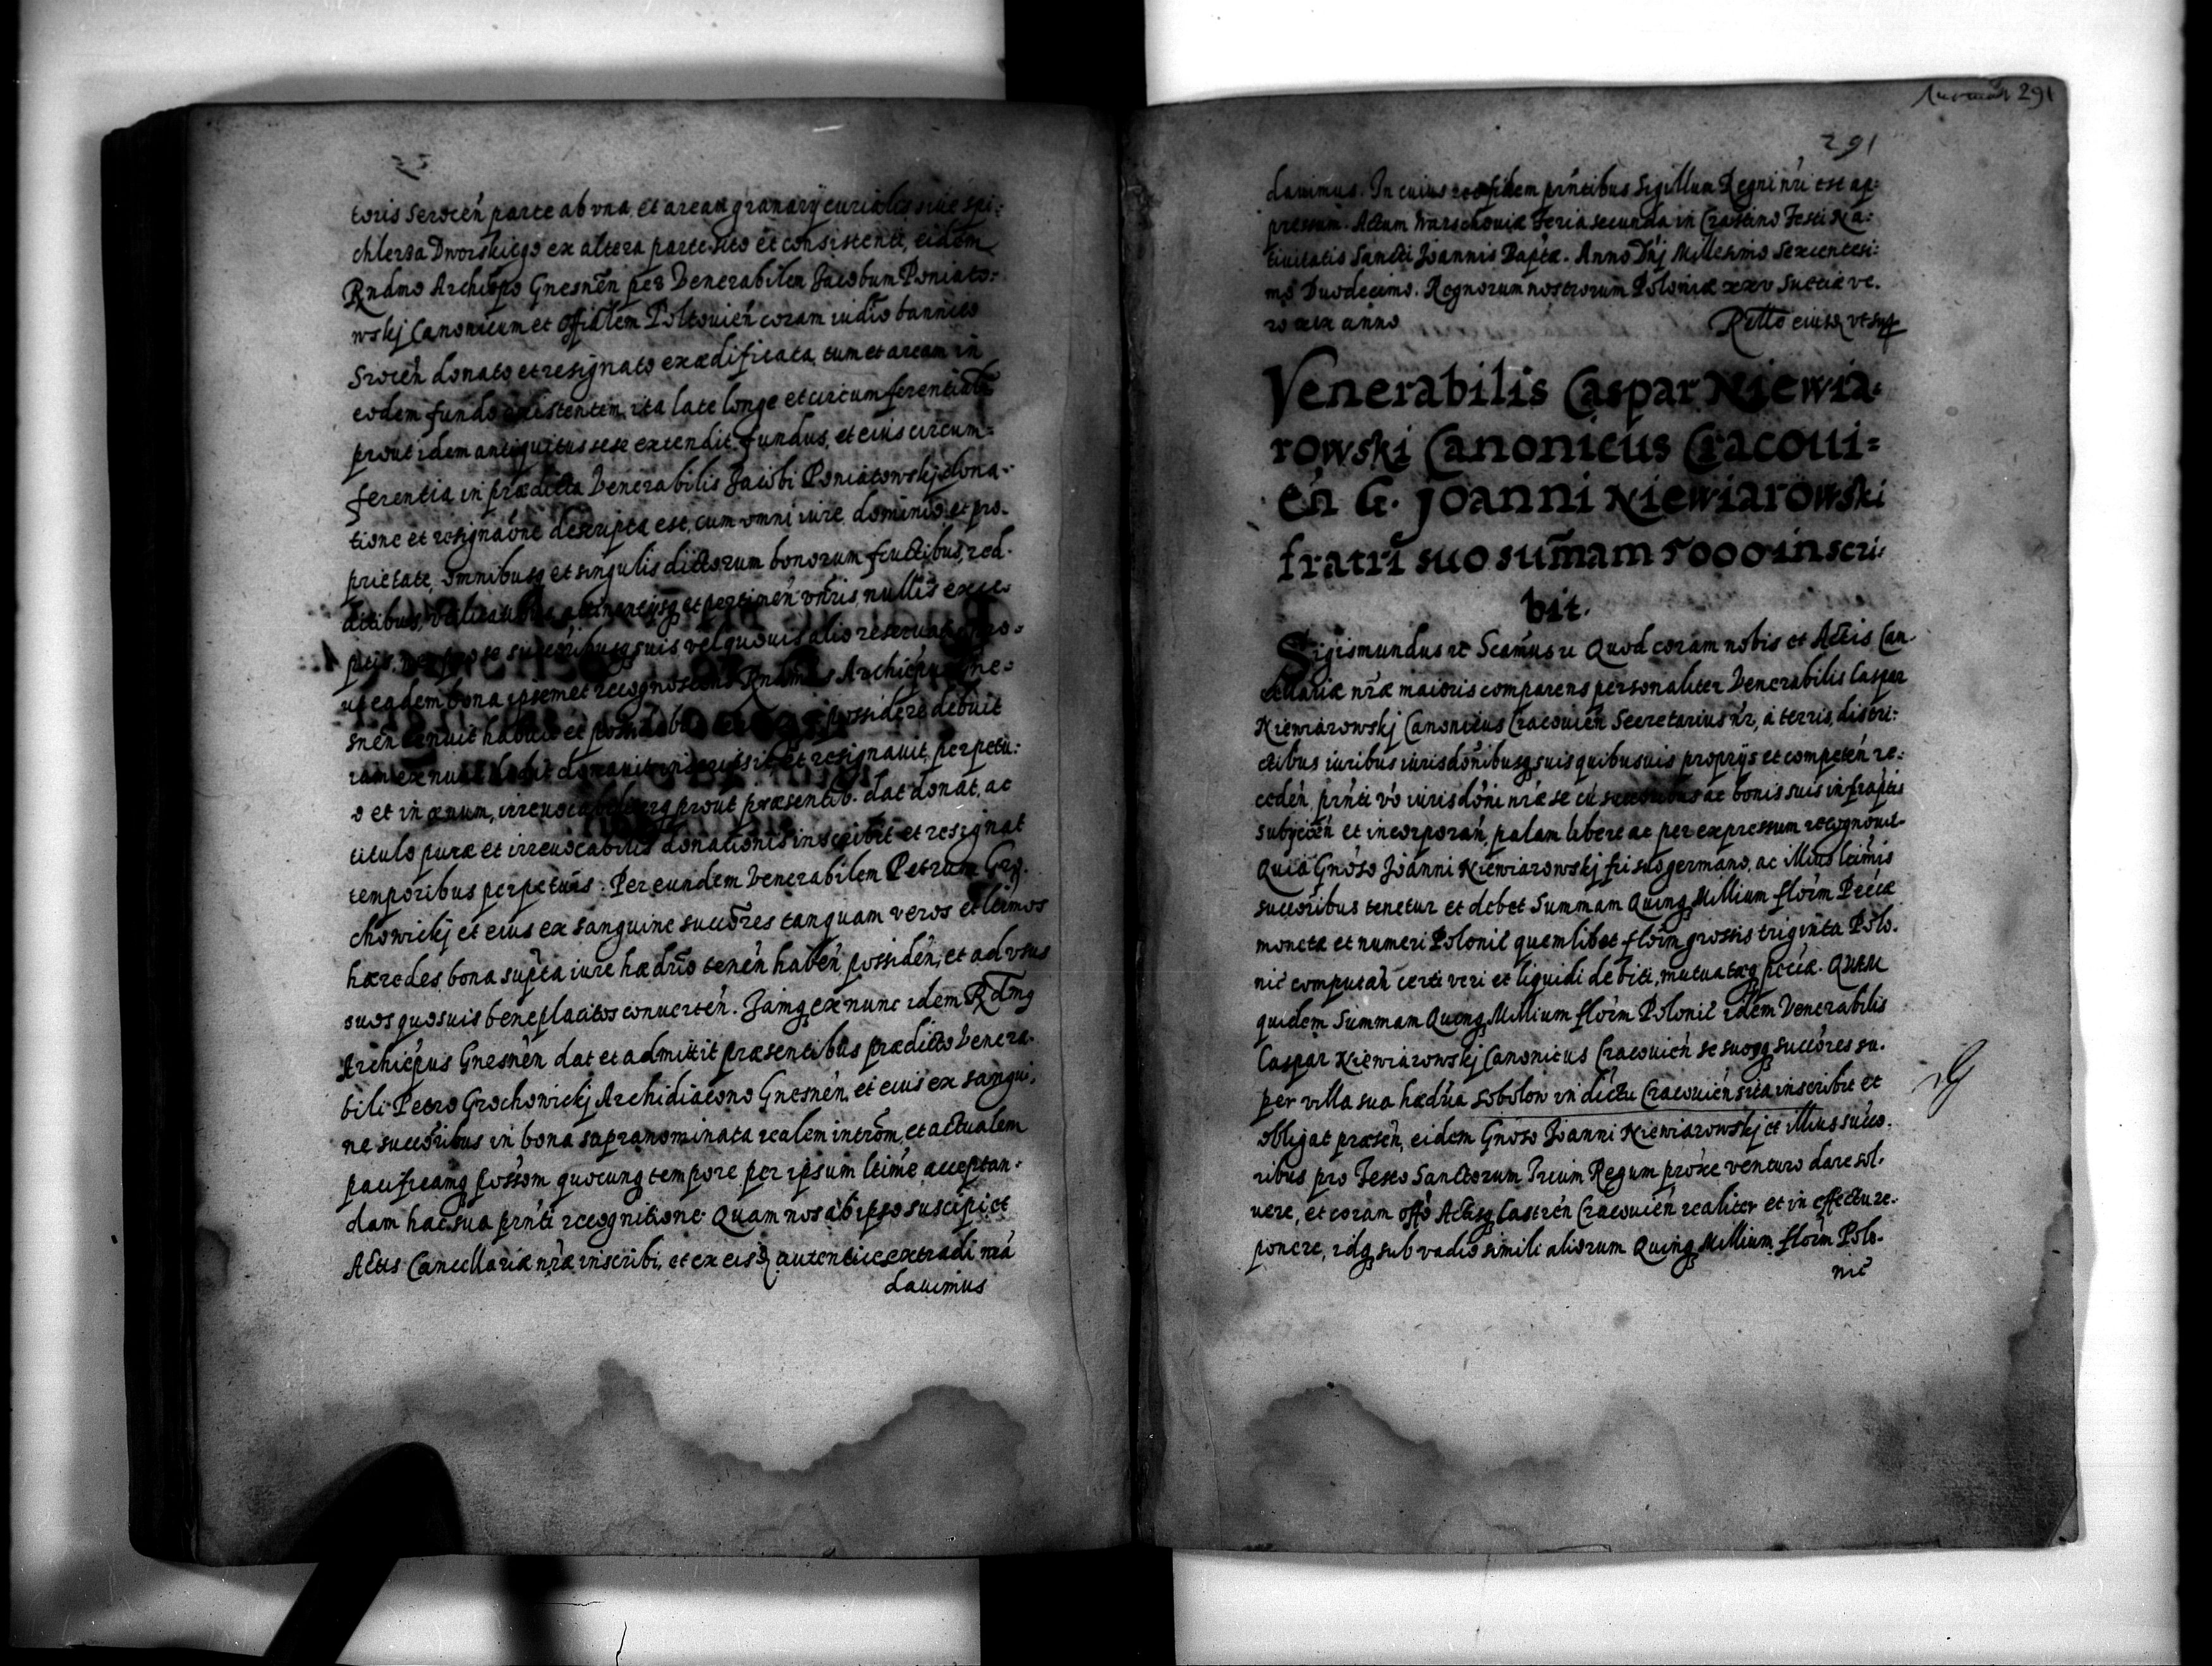 toris Serocen̄ parte ab vna, et aream granarÿ curialis siue spi:
chlerza Dworskiego ex altera parte sito et consistenti, eidem
Rndmo Archiepo Gnesnēn per Venerabilem Jacobum Poniato:
wskj Canonicum et Offialem Poltouień coram iudio bannito
Srocēn donato et resignato exædificata, tum et aream in
eodem fundo existentem, ita late longe et circumferentialr
prout idem antiquitus sese extendit fundus, et eius circum=
ferentia in prædicta Venerabilis Jacobi Poniatowskj dona-
tione et resignaōne descripta est, cum omni iure dominio et pro-
prietate, omnibusq et singulis dictorum bonorum fructibus, red-
ditibus, attinentÿsq et pertinēn vnīris, nullis exce-
ptis, suis vel quouis alio
eadem bona ipsemet recognoscens Rndmus Archiepus Gne-
snēn tenuit habuit et possidere debuit
donauit inscripsit et resignauit, perpetu:
o et in æuum, prout præsentib. dat donat, ac
titulo puræ et irreuocabilis donationis inscribit et resignat
temporibus perpetuis: Per eundem Venerabilem Petrum Gro-
chowickj et eius ex sanguine succōres tanquam veros et ltimos
hæredes, bona supta iure hædrio tenēn habēn, possidēn, et ad vsus
suos quosuis beneplacitos conuertēn. Jamq ex nunc idem Rdmq
Archiepus Gnesnēn dat et admittit præsentibus prædicto Venera-
bili Petro Grochowickj Archidiacono Gnesnēn, et eius ex sangui-
ne succōribus in bona supranominata realem introm, et actualem
pacificamq possōm quocunq tempore per ipsum ltime acceptan-
dam hac sua prńti recognitione. Quam nos ab ipso suscipi et
Actis Cancellariæ nræ inscribi, et ex eisq autentice extradi mā
dauimus
291
291
dauimus. In cuius rei fidem prńtibus Sigillum Regni nri est ap:
pressum. Actum Warschouiæ Feria secunda in Crastino Festi Na:
tiuitatis Sancti Joannis Baptæ. Anno Dnj Millesimo Sexcentesi:
mo Duodecimo. Regnorum nostrorum Poloniæ xxv Suetiæ ve-
ro xix anno
Retto eiusq vt sup
Venerabilis Caspar Niewia-
rowski Canonicus Cracoui=
ēn G. Joanni Niewiarowski
fratri suo sum̄am 5000 inscri-
bit.
Sigismundus rc Scamus rc Quod coram nobis et Actis Can-
cellariæ nræ maioris comparens personaliter Venerabilis Caspar
Niewiarowskj Canonicus Cracouiēn Secretarius nr, à terris, distri:
ctibus iuribus iurisdōnibusq suis quibusuis proprÿs et competēn re:
cedēn, prńti vō iurisdōni nræ se cū succōribus ac bonis suis infraptis
subÿciēn et incorporān, palam libere ac per expressum recognouit
Quia Gnōso Joanni Niewiarowskj fri suo germano, ac illius ltimis
succōribus tenetur et debet Summam Quinq Millium florīm Pecīæ
monetæ et numeri Polonīl quemlibet florīm grossis triginta Polo-
nic computān certi veri et liquidi debiti, mutuatæq pecīæ. Quam
quidem Summam Quinq Millium florīm Polonīl idem Venerabilis
Caspar Niewiarowskj Canonicus Cracouiēn se suosq succōres su-
per villa sua hædria Sobolow in dictu Cracouiēn sita inscribit et
obligat præsēn, eidem Gnōso Joanni Niewiarowskj et illius succo-
ribus pro Festo Sanctorum Trium Regum proxe venturo dare sol-
uere, et coram offō Actisq Castrēn Cracouiēn realiter et in effectu re-
ponere, idq sub vadio simili aliorum Quinq Millium florīm Polo-
nic